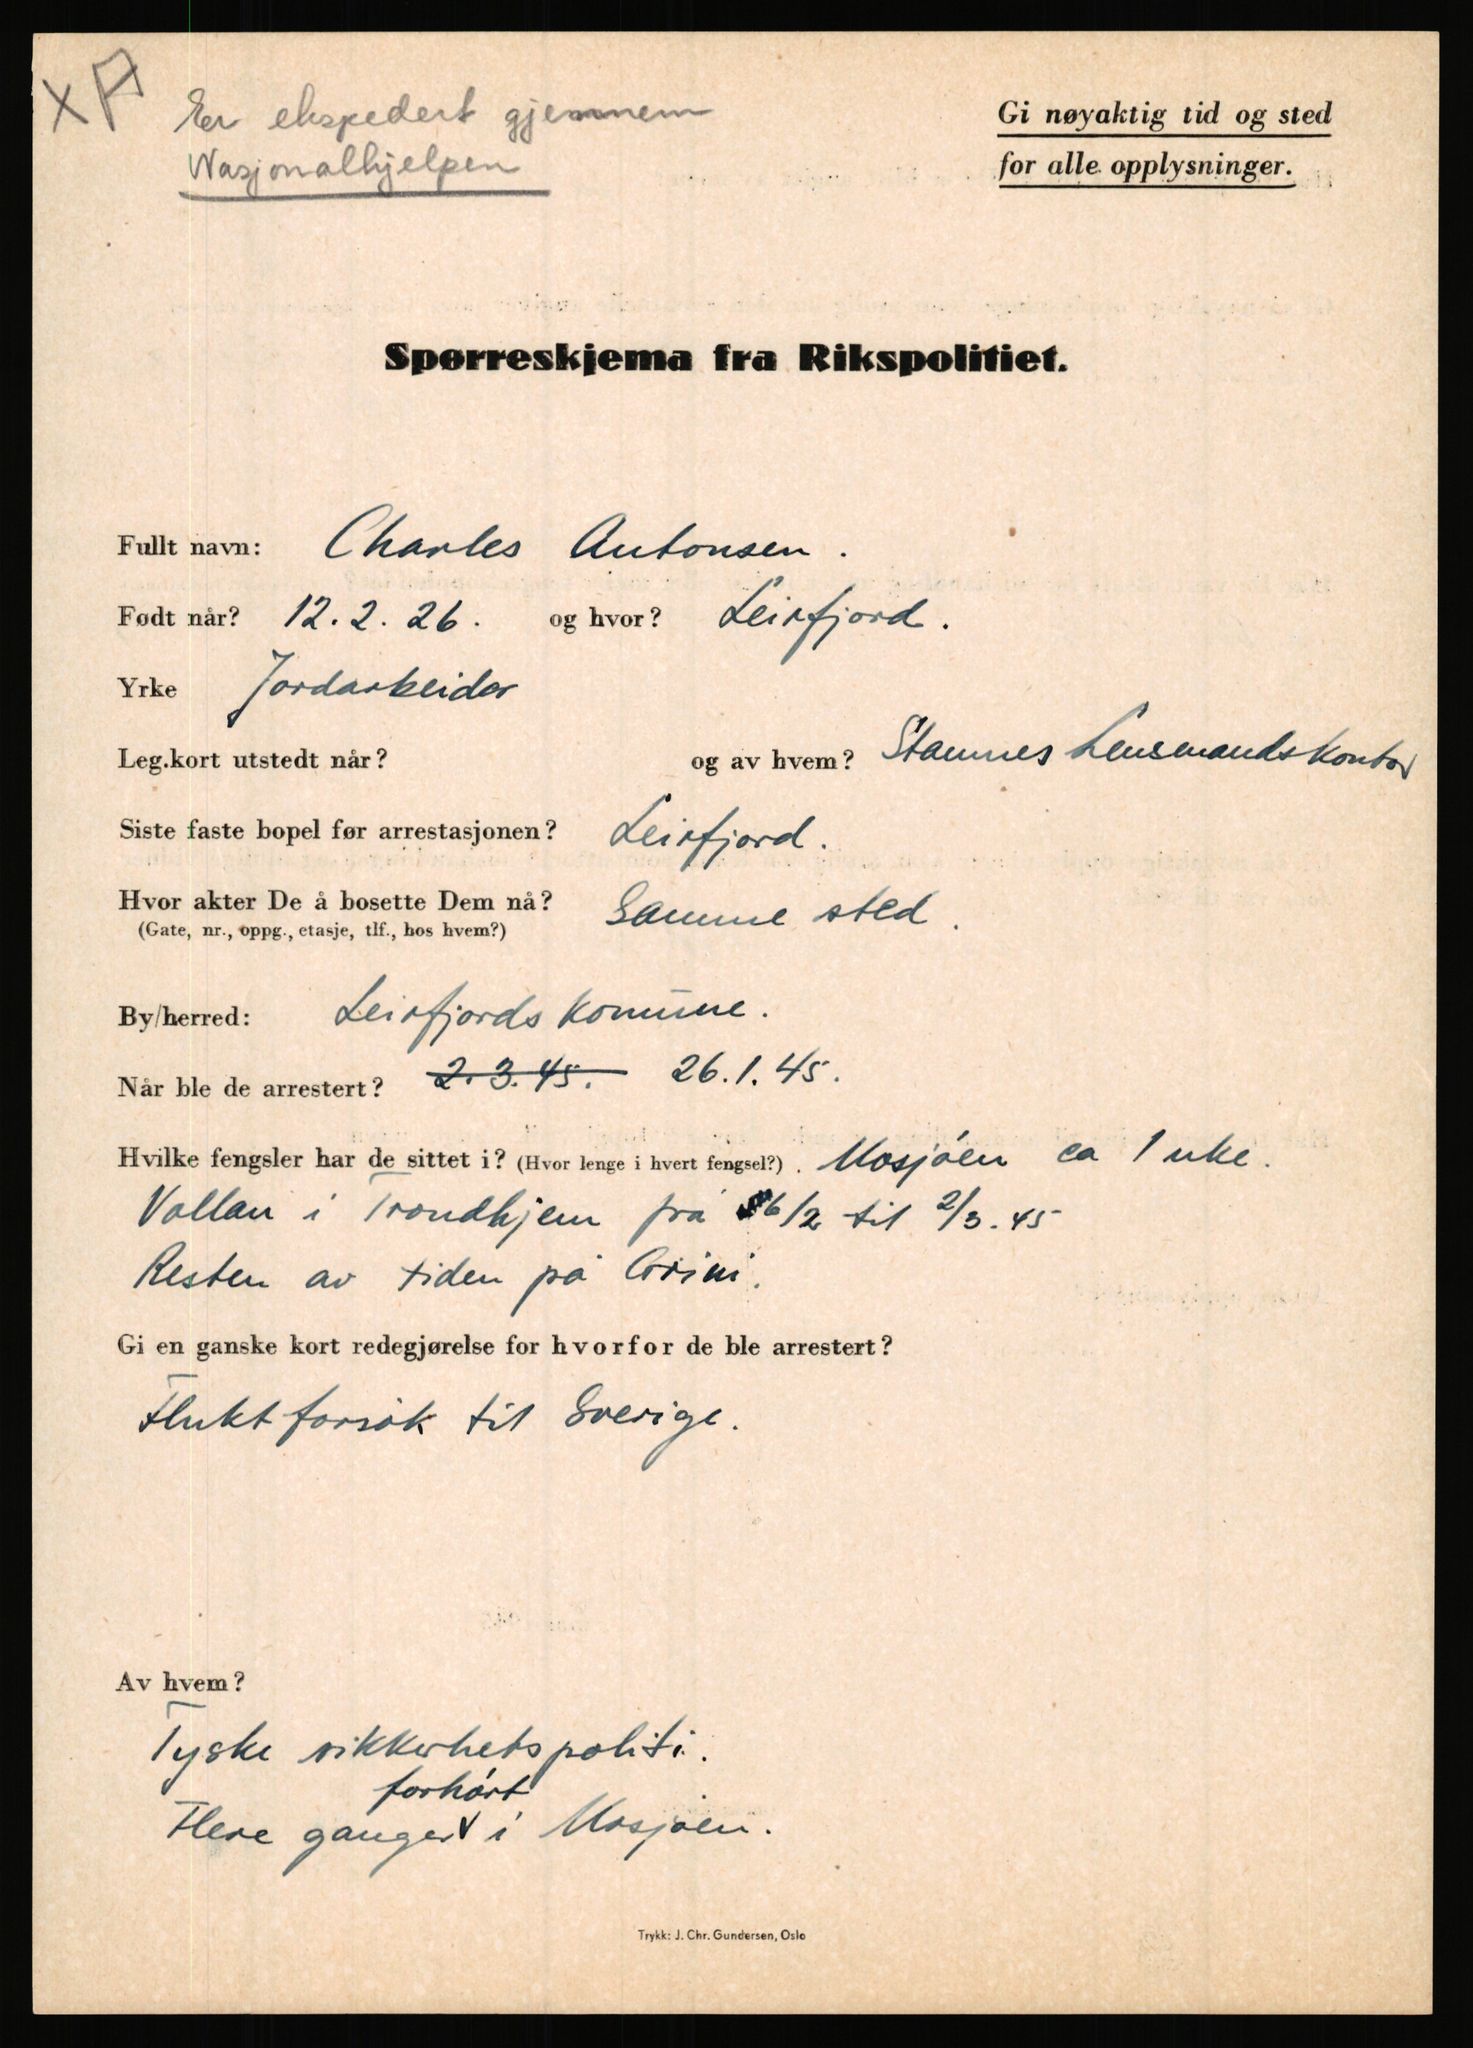 XA
Er ekspedert gjennem
Nasjonalhjelpen
Gi nøyaktig tid og sted
for alle opplysninger.
Spørreskjema fra Rikspolitiet.
Fullt navn: Charles Antonsen.
Født når? 12.2.26. og hvor? Leirfjord.
Yrke Jordarbeider
Leg.kort utstedt når? og av hvem? Stamnes Lensmandskontor
Siste faste bopel før arrestasjonen? Leirfjord.
Hvor akter De å bosette Dem nå? Samme sted.
(Gate, nr., oppg., etasje, tlf., hos hvem?)
By/herred: Leirfjords komune.
Når ble de arrestert? 2.3.45. 26.1.45.
Hvilke fengsler har de sittet i? (Hvor lenge i hvert fengsel?). Mosjöen ca 1 uke.
Vollan i Trondhjem frå 6/2 til 2/3.45
Resten av tiden på Grini.
Gi en ganske kort redegjørelse for hvorfor de ble arrestert?
Fluktforsök til Sverige.
Av hvem?
Tyske sikkerhetspoliti.
forhört
Flere ganger i Mosjöen.
Trykk: J. Chr. Gundersen, Oslo